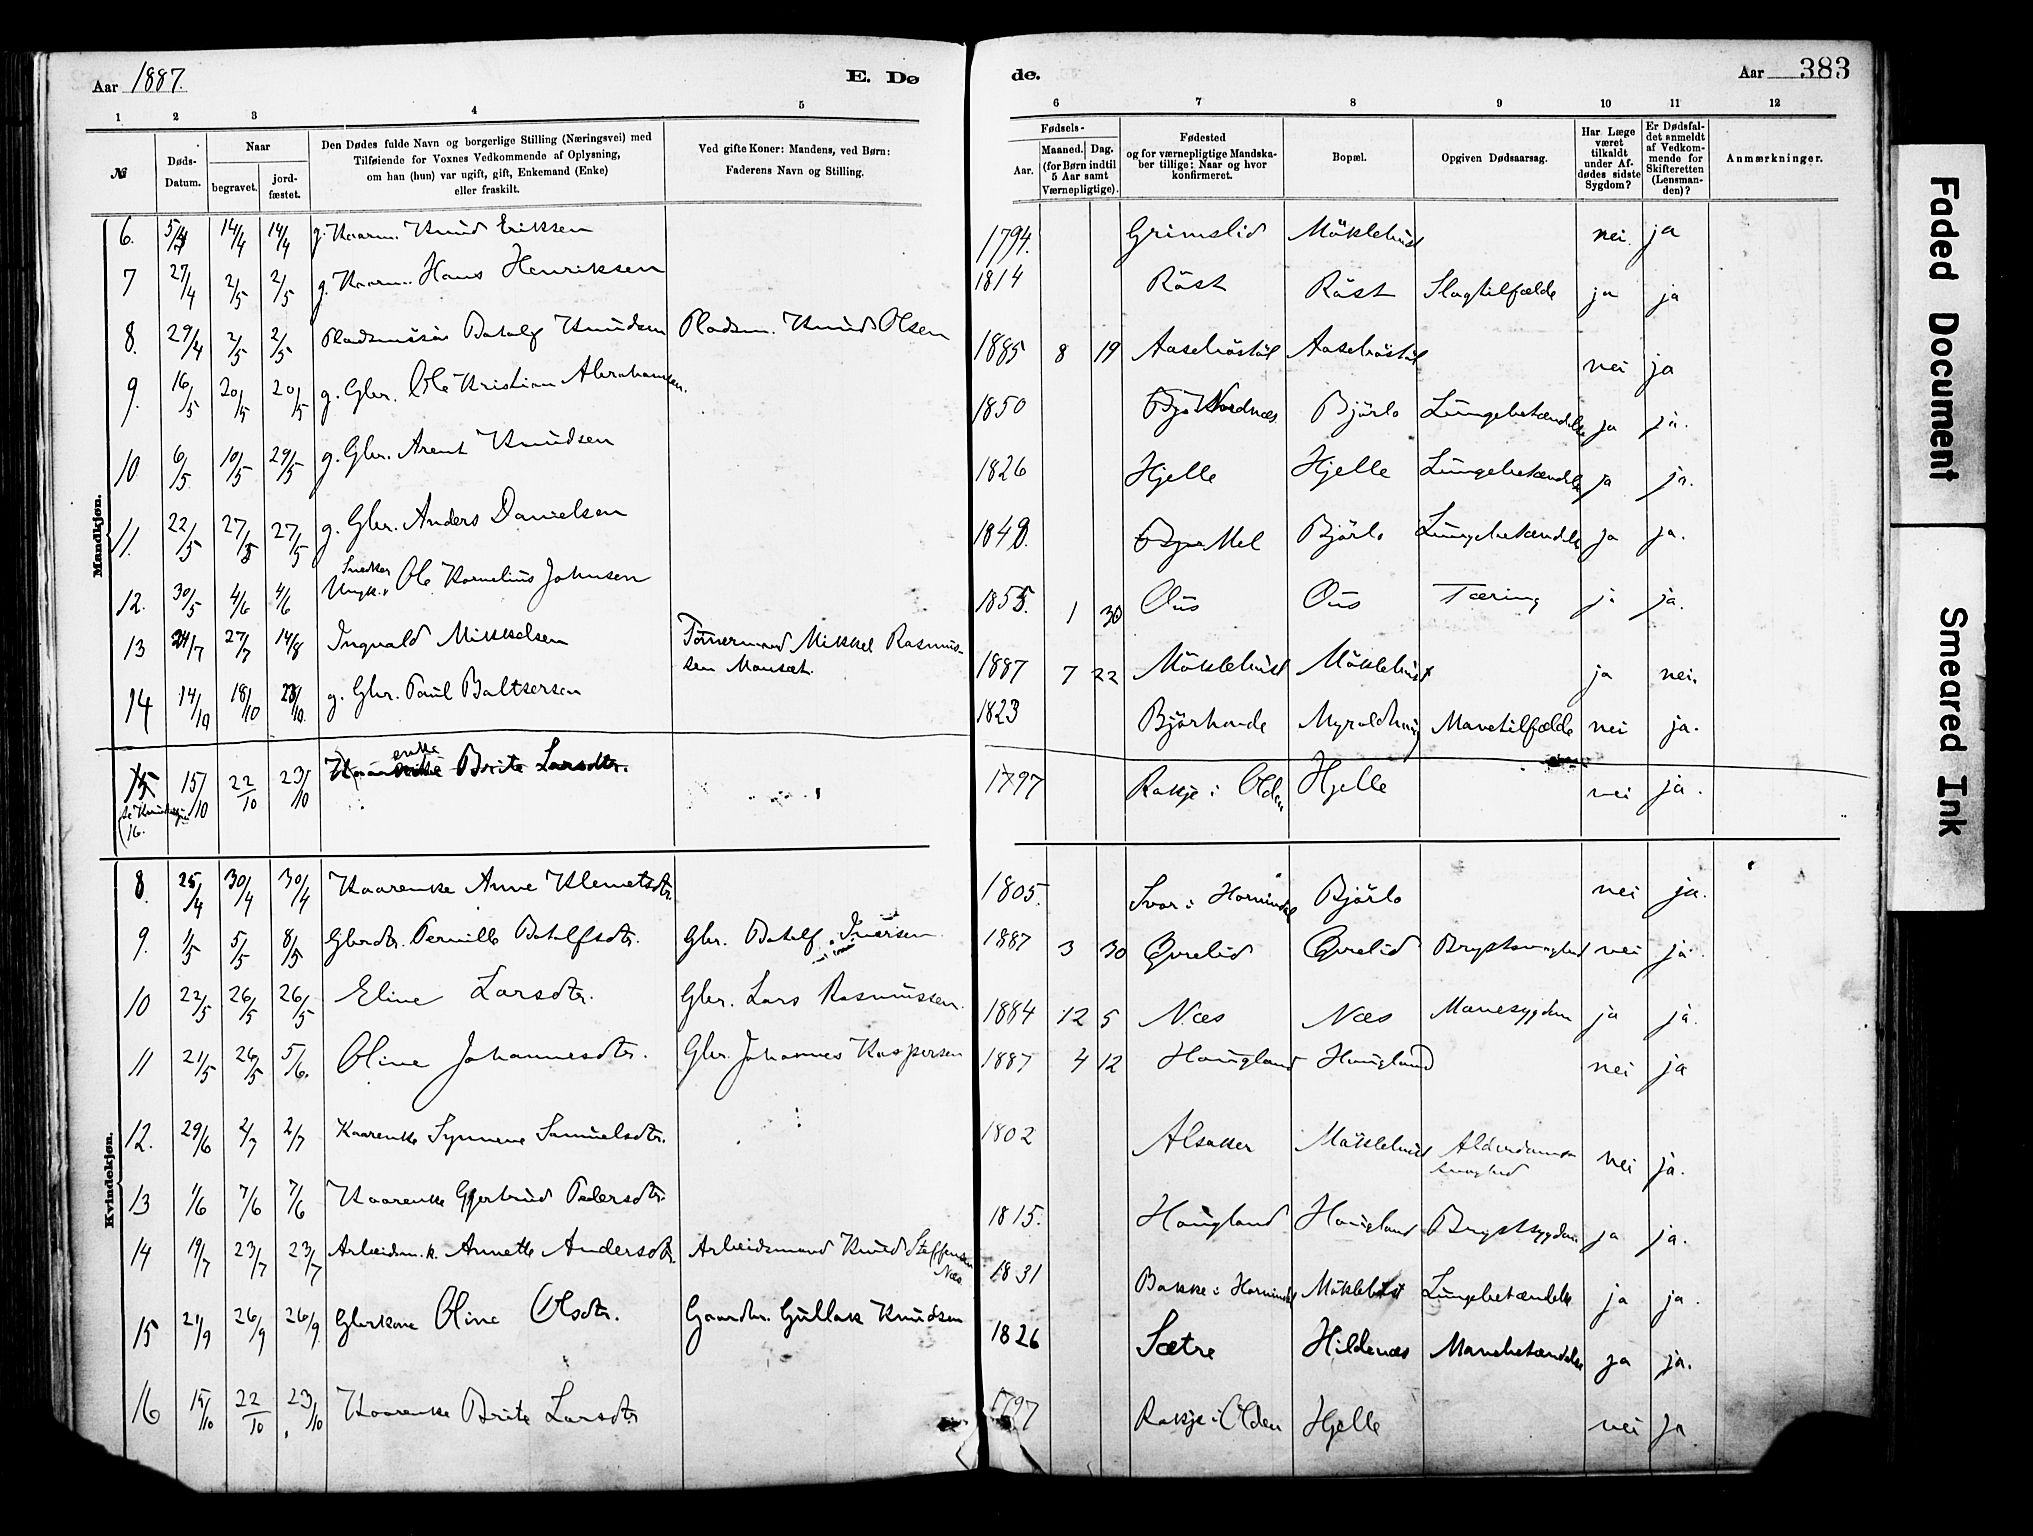 Aar 1887.
E. Dø
de.
Aar 383
1 2 3 4 5 6 7 8 9 10 11 12
№
Døds-Datum.
Naar
begravet.
jord-fæstet.
Den Dødes fulde Navn og borgerlige Stilling (Næringsvei) med
Tilføiende for Voxnes Vedkommende af Oplysning,
om han (hun) var ugift, gift, Enkemand (Enke)
eller fraskilt.
Ved gifte Koner: Mandens, ved Børn:
Faderens Navn og Stilling.
Fødsels-
Aar.
Maaned. Dag.
(for Børn indtil
5 Aar samt
Værnepligtige).
Fødested
og for værnepligtige Mandska-
ber tillige: Naar og hvor
konfirmeret.
Bopæl.
Opgiven Dødsaarsag.
Har Læge
været
tilkaldt
under Af-
dødes sidste
Sygdom?
Er Dødsfal-
det anmeldt
af Vedkom-
mende for
Skifteretten
(Lensman-
den)?
Anmærkninger.
Mandkjøn.
6. 5/4 14/4 14/4 g. Kaarm. Knud Eriksen 1794. Grimslid Möklebust nei. ja
7 27/4 2/5 2/5 g. Kaarm. Hans Henriksen 1814 Röst Röst Slagtilfælde ja ja
8. 29/4 2/5 2/5 Batalf Knudsen Pladsm. Knud Olsen 1885 8 19 nei ja
9. 16/5 20/5 20/5 g. Gbr. Ole Kristian Abrahamsen. 1850 Nordnæs. Björlo Lungebetændelse ja ja.
10 6/5 10/5 29/5 g. Gbr. Arent Knudsen 1826 Hjelle Hjelle Lungebetændelse ja ja.
11. 22/5 27/5 27/5 g. Gbr. Anders Danielsen Mel Björlo Lungebetændelse ja ja.
12. 30/5 4/6 4/6 Ungk. Snedker Ole Kornelius Johnsen 1855. 1 30 Ous Ous Tæring ja ja.
13 24/7 27/7 14/8 Ingvald Mikkelsen Tömermand Mikkel Rasmus-
sen 1887 7 22 Möklebust Möklebust ja nei.
14 14/10 18/10 23/10. g. Gbr. Paul Baltsersen 1823 Björhovde Mavetilfælde nei ja.
15 15/10 22/10 23/10 enke Brite Larsdtr. 1797 Rakje i Olden Hjelle nei ja.
16.
Kvindekjøn.
8. 25/4 30/4 30/4 Kaarenke Anne Klemetsdtr. 1805. Svor i Hornindal Björlo nei ja.
9. 1/5 5/5 8/5 Gbrdtr. Pernille Batalfsdtr. Gbr. Batalf Iversen 1887 3 30 Qvrelid Qvrelid Brystsvaghed nei ja.
10 22/5 26/5 26/5 Eline Larsdtr. Gbr. Lars Rasmussen. 1884 12 5 Næs Næs Mavesygdom ja ja.
11 21/5 26/5 5/6. Oline Johannesdtr. Gbr. Johannes Kaspersen 1887 4 12 Hougland Hougland nei ja
12. 29/6 2/7 2/7 Kaarenke Synneve Samuelsdtr. 1802 Alsaker Möklebust Alderdoms-
svaghed nei ja.
13 1/6 7/6 7/6 Kaarenke Gjertrud Pedersdtr. 1815. Hougland Hougland Brystsygdom ja ja.
14 19/7 23/7 23/7 Arbeidsm. k. Annette Andersdtr. Arbeidsmand Knud Steffensen
Næs 1831 Bakke i Hornindal Möklebust Lungebetændelse ja ja.
15 21/9 26/9 26/9. Gbrkone Oline Olsdtr. Gaardbr. Gullak Knudsen 1826 Sætre Hildenæs Mavebetændelse ja ja.
16 15/10 22/10 23/10 Kaarenke Brite Larsdtr. 1797 Rakje i Olden Hjelle nei ja
Faded Document
Smeared Ink